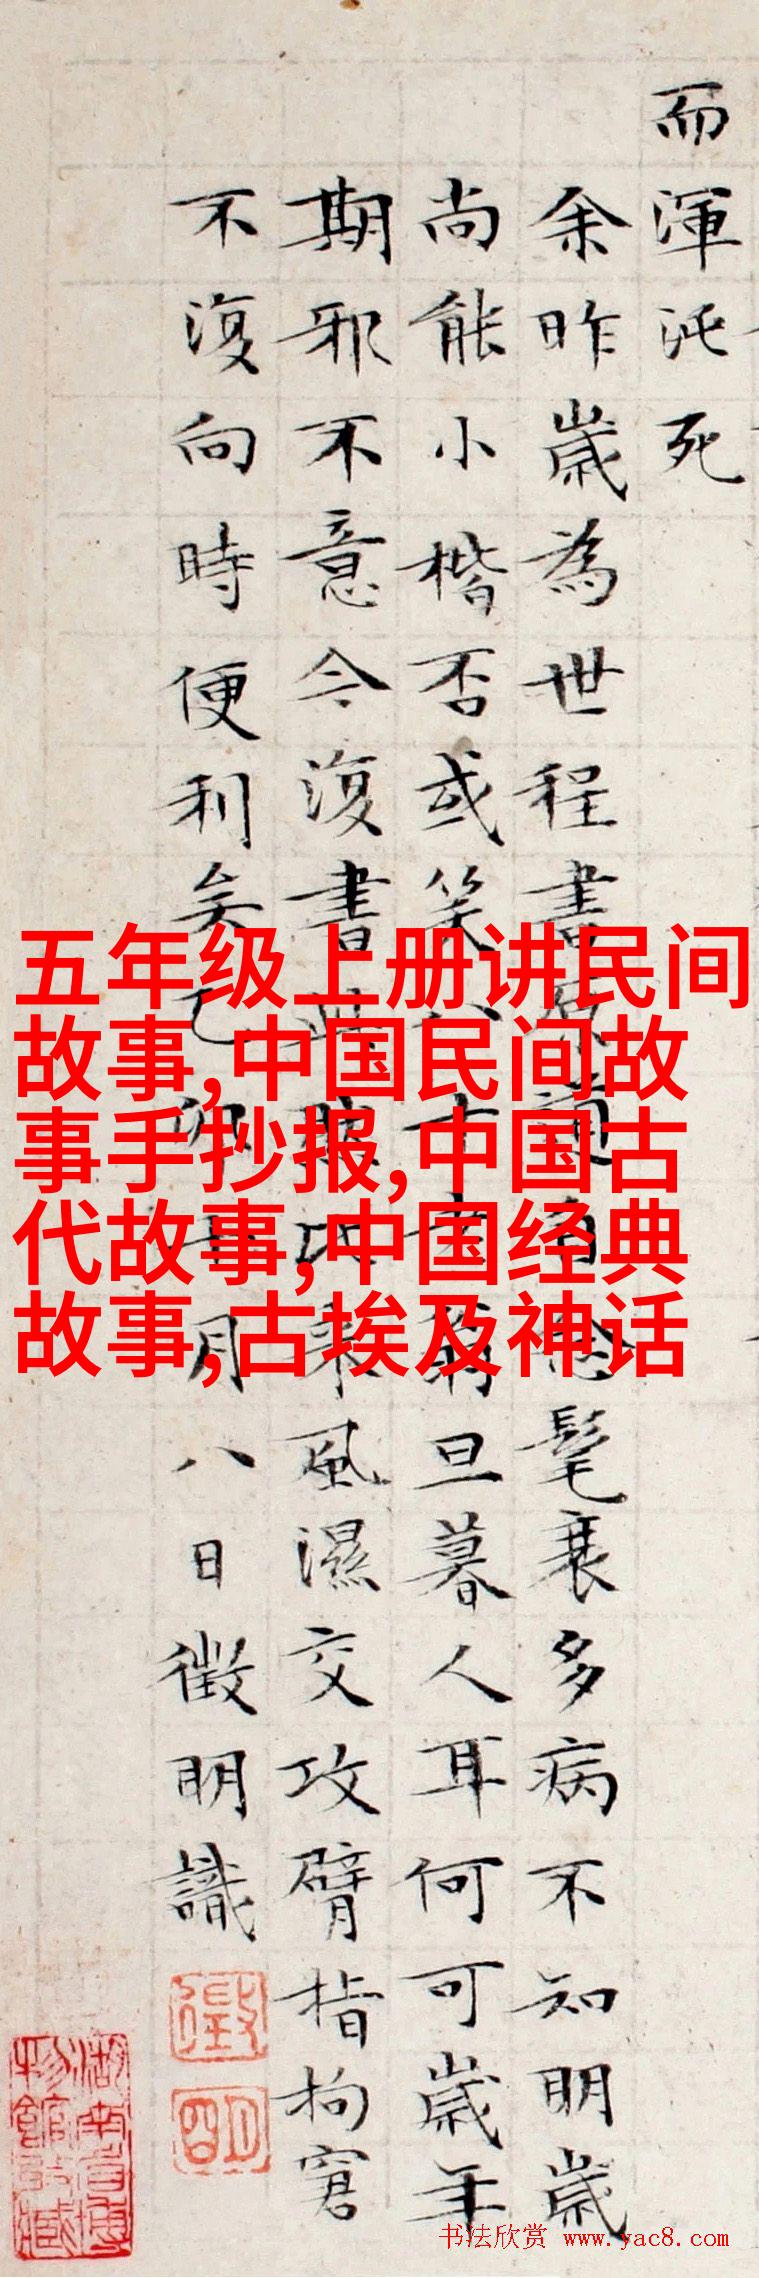 而渾沌死
余昨歲為世程書自念髦衰多病不知明歲
尚能小楷否或笑八十老翁旦暮人耳何可歲年
期邪不意今復書此來風濕交攻臂指拘窘
不復向時便利矣乙卯月八日徵明識
徵
明
湖南省博
物館收藏
五年级上册讲民间
故事,中国民间故
事手抄报,中国古
代故事,中国经典
故事,古埃及神话
书法欣赏 www.yac8.com